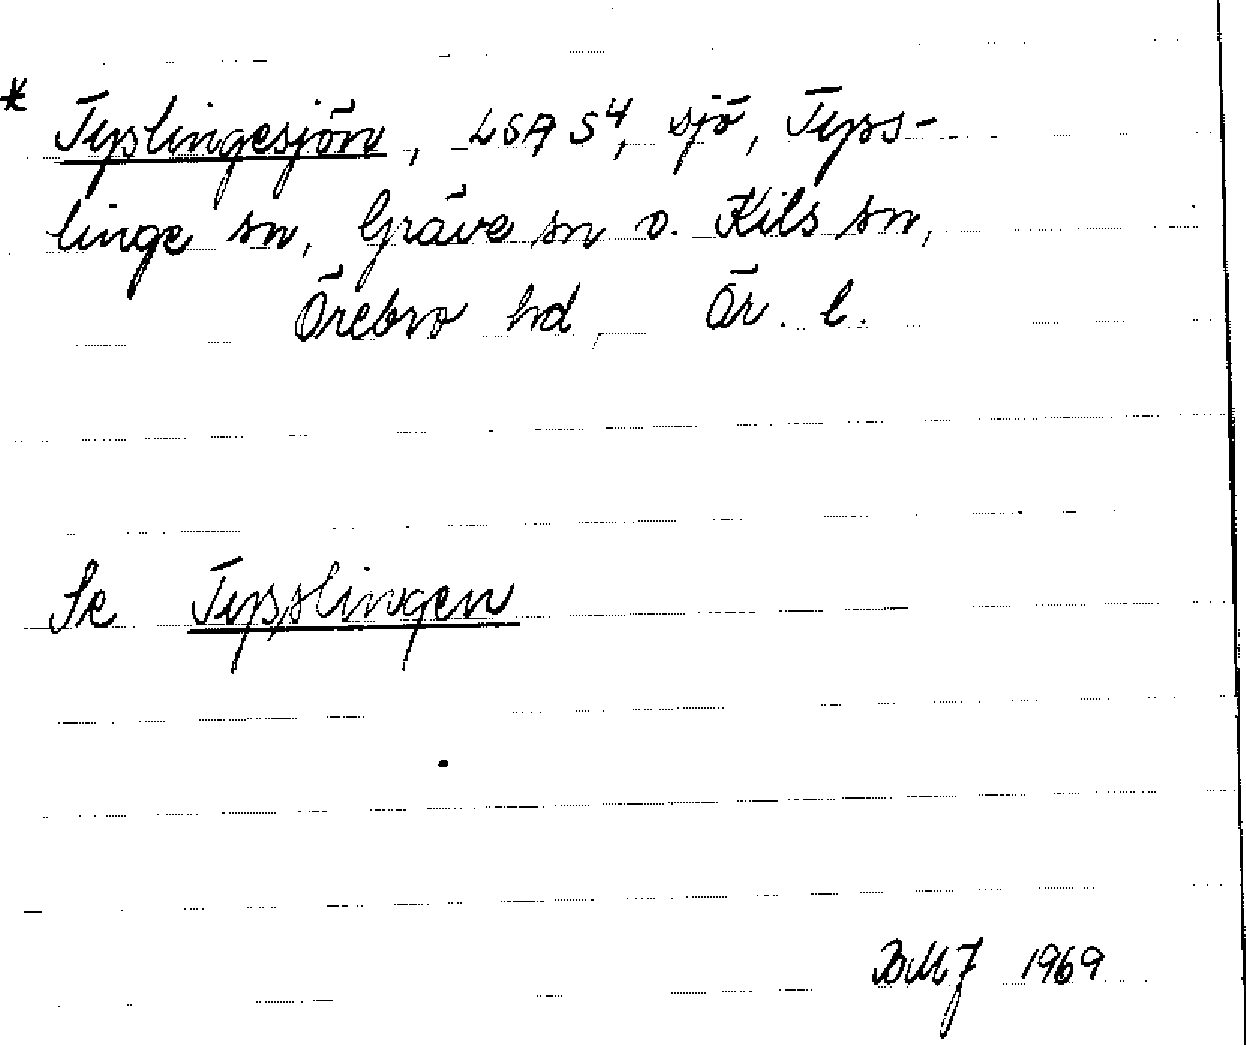 * Typslingesjön, LSA S4, sjö, Tyss-
linge sn, Gräve sn o. Kils sn,
Örebro hd, Ör. l.
Se Tysslingen
BMJ 1969